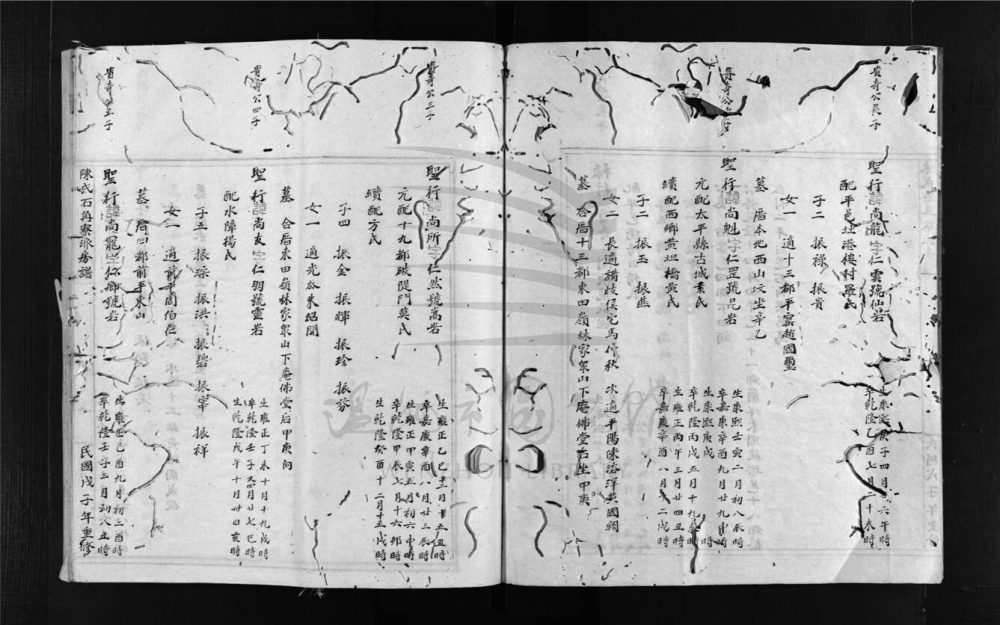 貴奇公長子
聖行諱尚龍字仁雲號仙岩
生康熙庚子四月六午時
卒乾隆乙酉七月二十未時
配平邑北港樓村羅氏
子二 振祿 振貴
女一 適十三都平窩趙國璽
墓 厝本地西山垵坐辛乙
貴奇公子
聖行諱尚魁字仁罡號昆岩
生康熙壬寅二月初八辰時
卒嘉慶辛酉九月廿九申時
元配太平縣古城素氏
生康熙庚戌
卒乾隆丙戌五月十九時
續配西鄉黃坦橋黃氏
生雍正丙午三月廿四丑時
卒嘉慶辛酉八月十二戌時
子二 振玉 振燕
女二 長適讚歧侯宅馬停秋 次適平陽陳洛洋英國朝
墓 合厝十三都東田嶺林家衆山下庵佛堂右坐甲庚
貴奇公三子
聖行諱尚所字仁然號嵩岩
生雍正乙巳三月十五丑時
卒嘉慶辛酉八月廿三辰時
元配十九都坡隄門莫氏
生雍正甲寅五月初六申時
卒乾隆甲辰七月十六卯時
續配方氏
生乾隆癸酉十二月十五戌時
子四 振金 振輝 振珍 振芬
女一 適光岙朱紹開
墓 合厝東田嶺林家衆山下庵佛堂后甲庚向
貴奇公四子
聖行諱尚友字仁朋號靈岩
生雍正丁未十月十九戌時
卒乾隆壬子又四月廿七巳時
配水障楊氏
生乾隆戊午十月廿四亥時
子五 振琮 振洪 振碧 振寧 振祥
女一 適前平園伯仁
墓 厝四都前平東山
貴奇公五子
聖行諱尚寵字仁鄉號岩
生雍正己酉九月初三酉時
卒乾隆壬子三月初八丑時
陳氏石再寮派房譜
民國戊子年重修